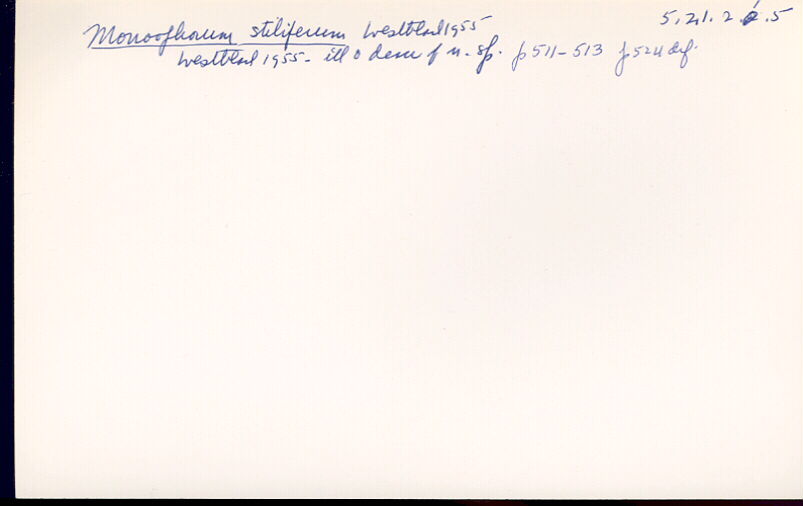 Monoophorum stiliferum Westblad 1955 5.21.2.6.5
Westblad 1955 - ill o descr f n. sp. p 511-513 p 524 def.